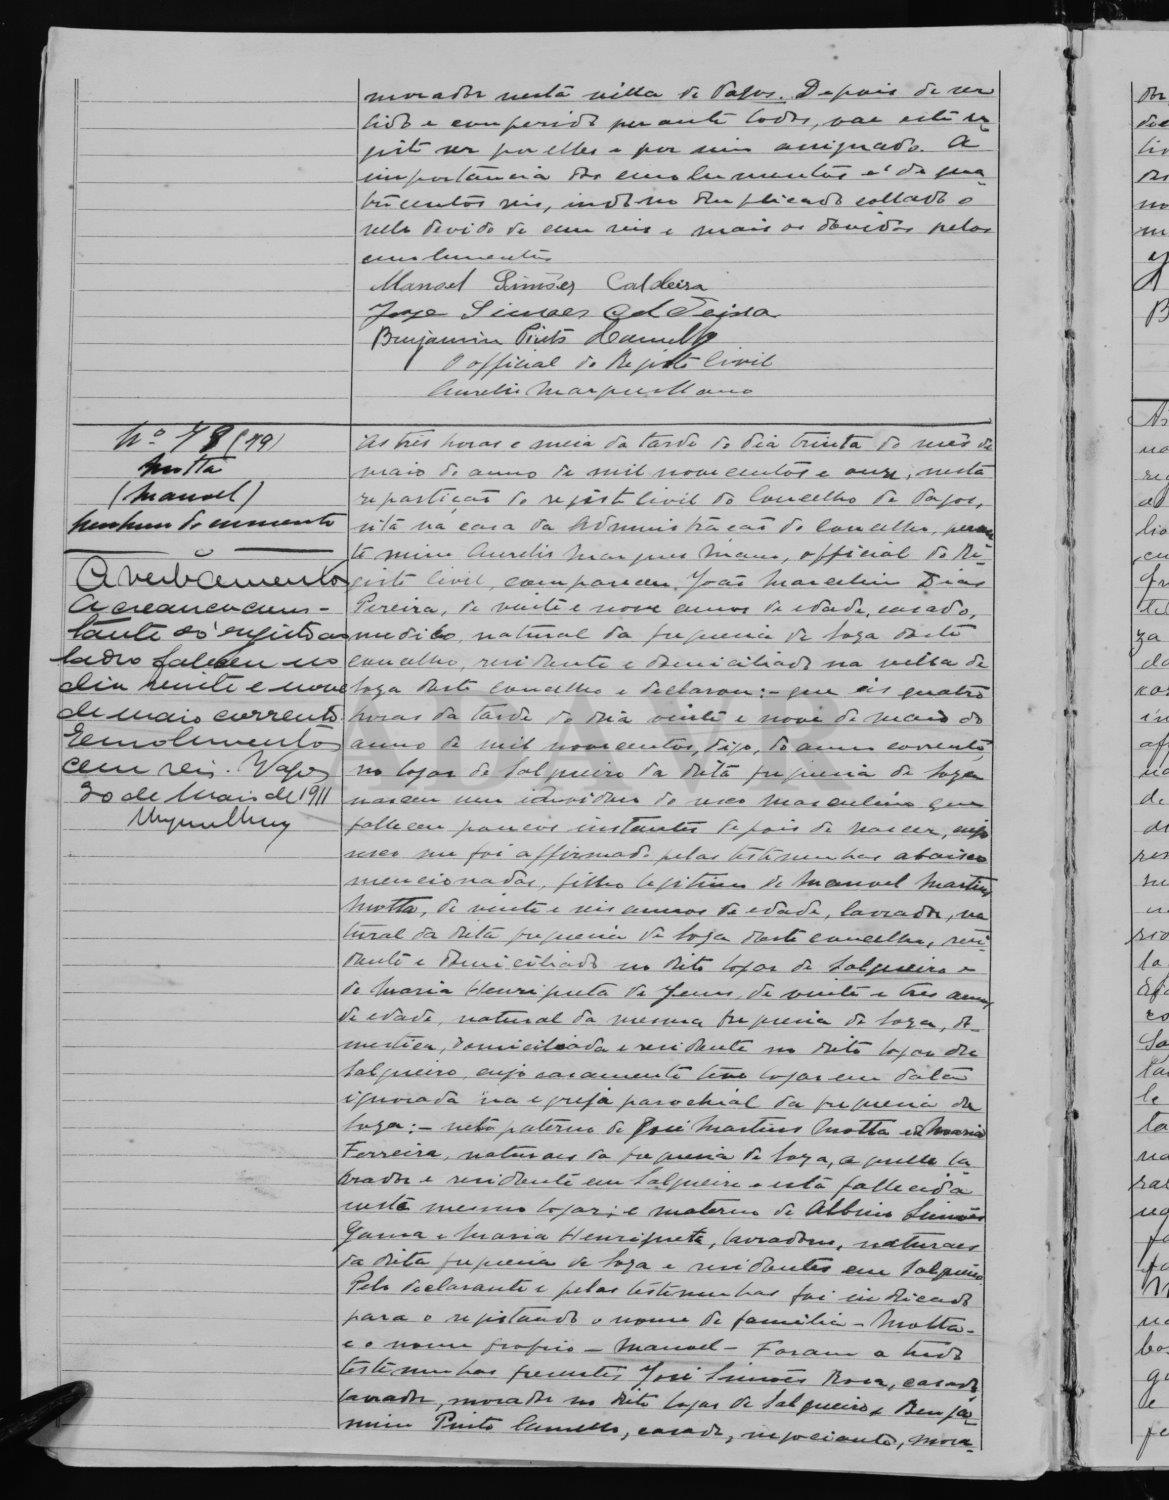 morador nesta villa de Vagos. Depois de ser
lido e conferido perante todos, vae este re-
gisto ser por elles e por mim assignado. A
importancia dos emolumentos é de qua-
trucentos reis, indo no duplicado collado o
sello devido de cem reis e mais os devidos pelos
emolumentos
Manoel Simões Caldeira
Jose Simoes
Benjamim Pinto Camello
O official do Registo Civil
Aurelio Marques Mano
Nº 78 (79)
Motta
(Manoel)
Nenhum documento
Averbamento
A creança cons-
tante do registo ao
lado faleceu no
dia vinte e nove
de maio corrente.
Emolumentos
cem reis. Vagos
30 de Maio de 1911
As tres horas e meia da tarde do dia trinta do mês de
maio do anno de mil novecentos e onze, nesta
repartição do registo civil do Concelho de Vagos,
sita na casa da Administração do Concelho, peran-
te mim Aurelio Marques Mano, official do Re-
gisto Civil, compareceu João Marcelino Dias
Pereira, de vinte e nove annos de edade, casado,
medico, natural da freguesia de Soza deste
concelho, residente e domiciliado na villa de
Soza deste concelho e declarou: - que ás quatro
horas da tarde do dia vinte e nove de maio do
anno de mil novecentos, digo, do anno corrente,
no logar de Salgueiro da dita freguesia de Soza
nasceu um individuo do sexo masculino que
falleceu poucos instantes depois de nascer, cujo
sexo me foi affirmado pelas testemunhas abaixo
mencionadas, filho legitimo de Manoel Martins
Motta, de vinte e seis annos de edade, lavrador, na-
tural da dita freguesia de Soza deste concelho, resi-
dente e domiciliado no dito logar de Salgueiro e
de Maria Henriqueta de Jesus, de vinte e tres annos
de edade, natural da mesma freguesia de Soza, do-
mestica, domiciliada e residente no dito logar de
Salgueiro, cujo casamento teve logar em data
ignorada na egreja parochial da freguesia de
Soza: - neto paterno de José Martins Motta e de Maria
Ferreira, naturaes da freguesia de Soza, aquelle la-
vrador e residente em Salgueiro e esta fallecida
neste mesmo logar; e materno de Albino Simões
Gama e Maria Henriqueta, lavradores, naturaes
da dita freguesia de Soza e residentes em Salgueiro.
Pelo declarante e pelas testemunhas foi indicado
para o registando o nome de familia - Motta -
e o nome proprio - Manoel - Foram a tudo
testemunhas presentes José Simões Rosa, casado,
lavrador, morador no dito logar de Salgueiro e Benja-
mim Pinto Camello, casado, negociante, mora-
ADAVR